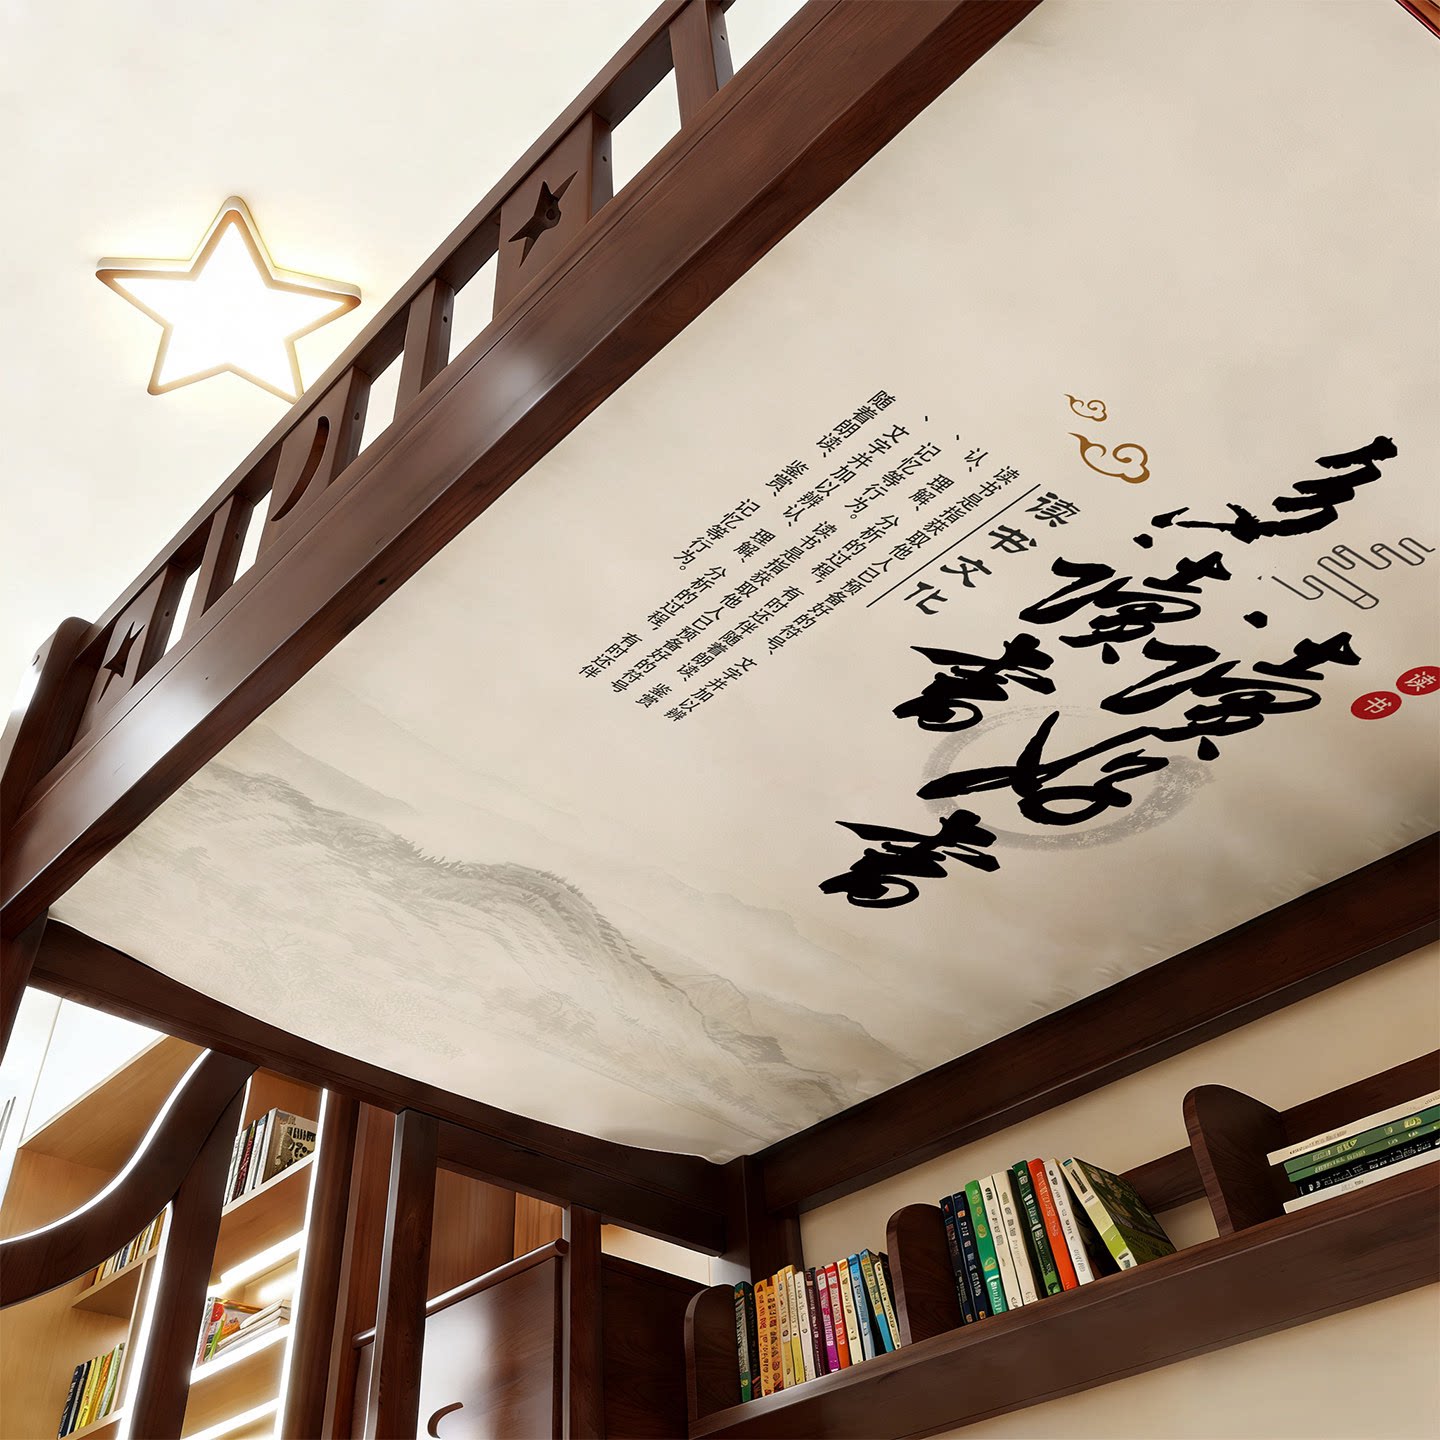 多讀書
讀好書
读书
读书文化
读书是指获取他人已预备好的符号、文字并加以辨
认、理解、分析的过程，有时还伴随着朗读、鉴赏
、记忆等行为。读书是指获取他人已预备好的符号
、文字并加以辨认、理解、分析的过程，有时还伴
随着朗读、鉴赏、记忆等行为。